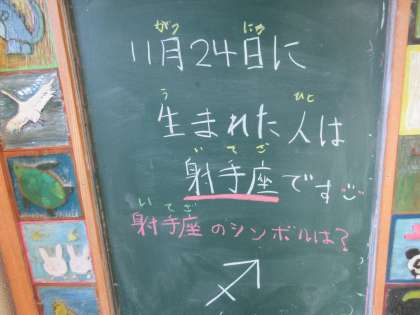 がつ にち
11月24日に
う ひと
生まれた人は
い て ざ
射手座です
い て ざ
射手座のシンボルは？